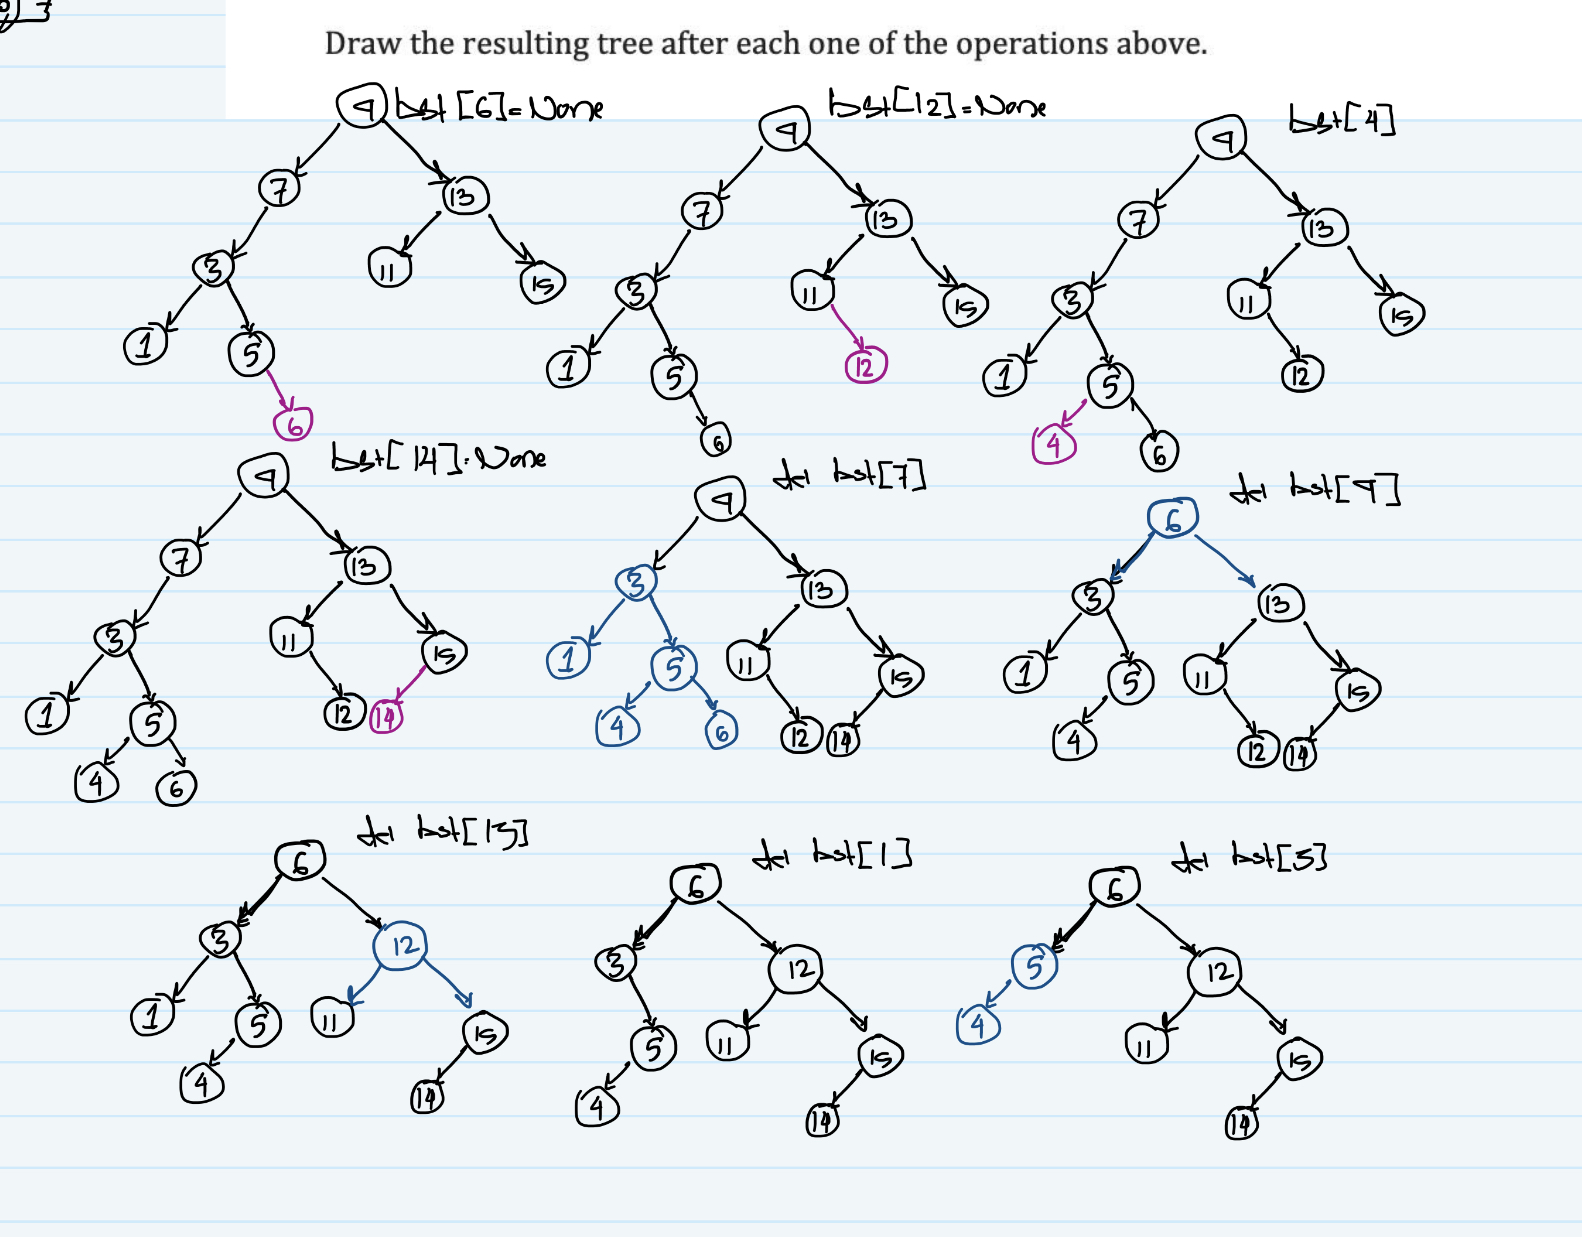 Draw the resulting tree after each one of the operations above.
bst[6]=None
9
7 13
3 11 15
1 5
6
bst[12]=None
9
7 13
3 11 15
1 5 12
6
bst[4]
9
7 13
3 11 15
1 5 12
4 6
bst[14]=None
9
7 13
3 11 15
1 5 12 14
4 6
del bst[7]
9
3 13
1 5 11 15
4 6 12 14
del bst[9]
6
3 13
1 5 11 15
4 12 14
del bst[13]
6
3 12
1 5 11 15
4 14
del bst[1]
6
3 12
5 11 15
4 14
del bst[3]
6
5 12
4 11 15
14